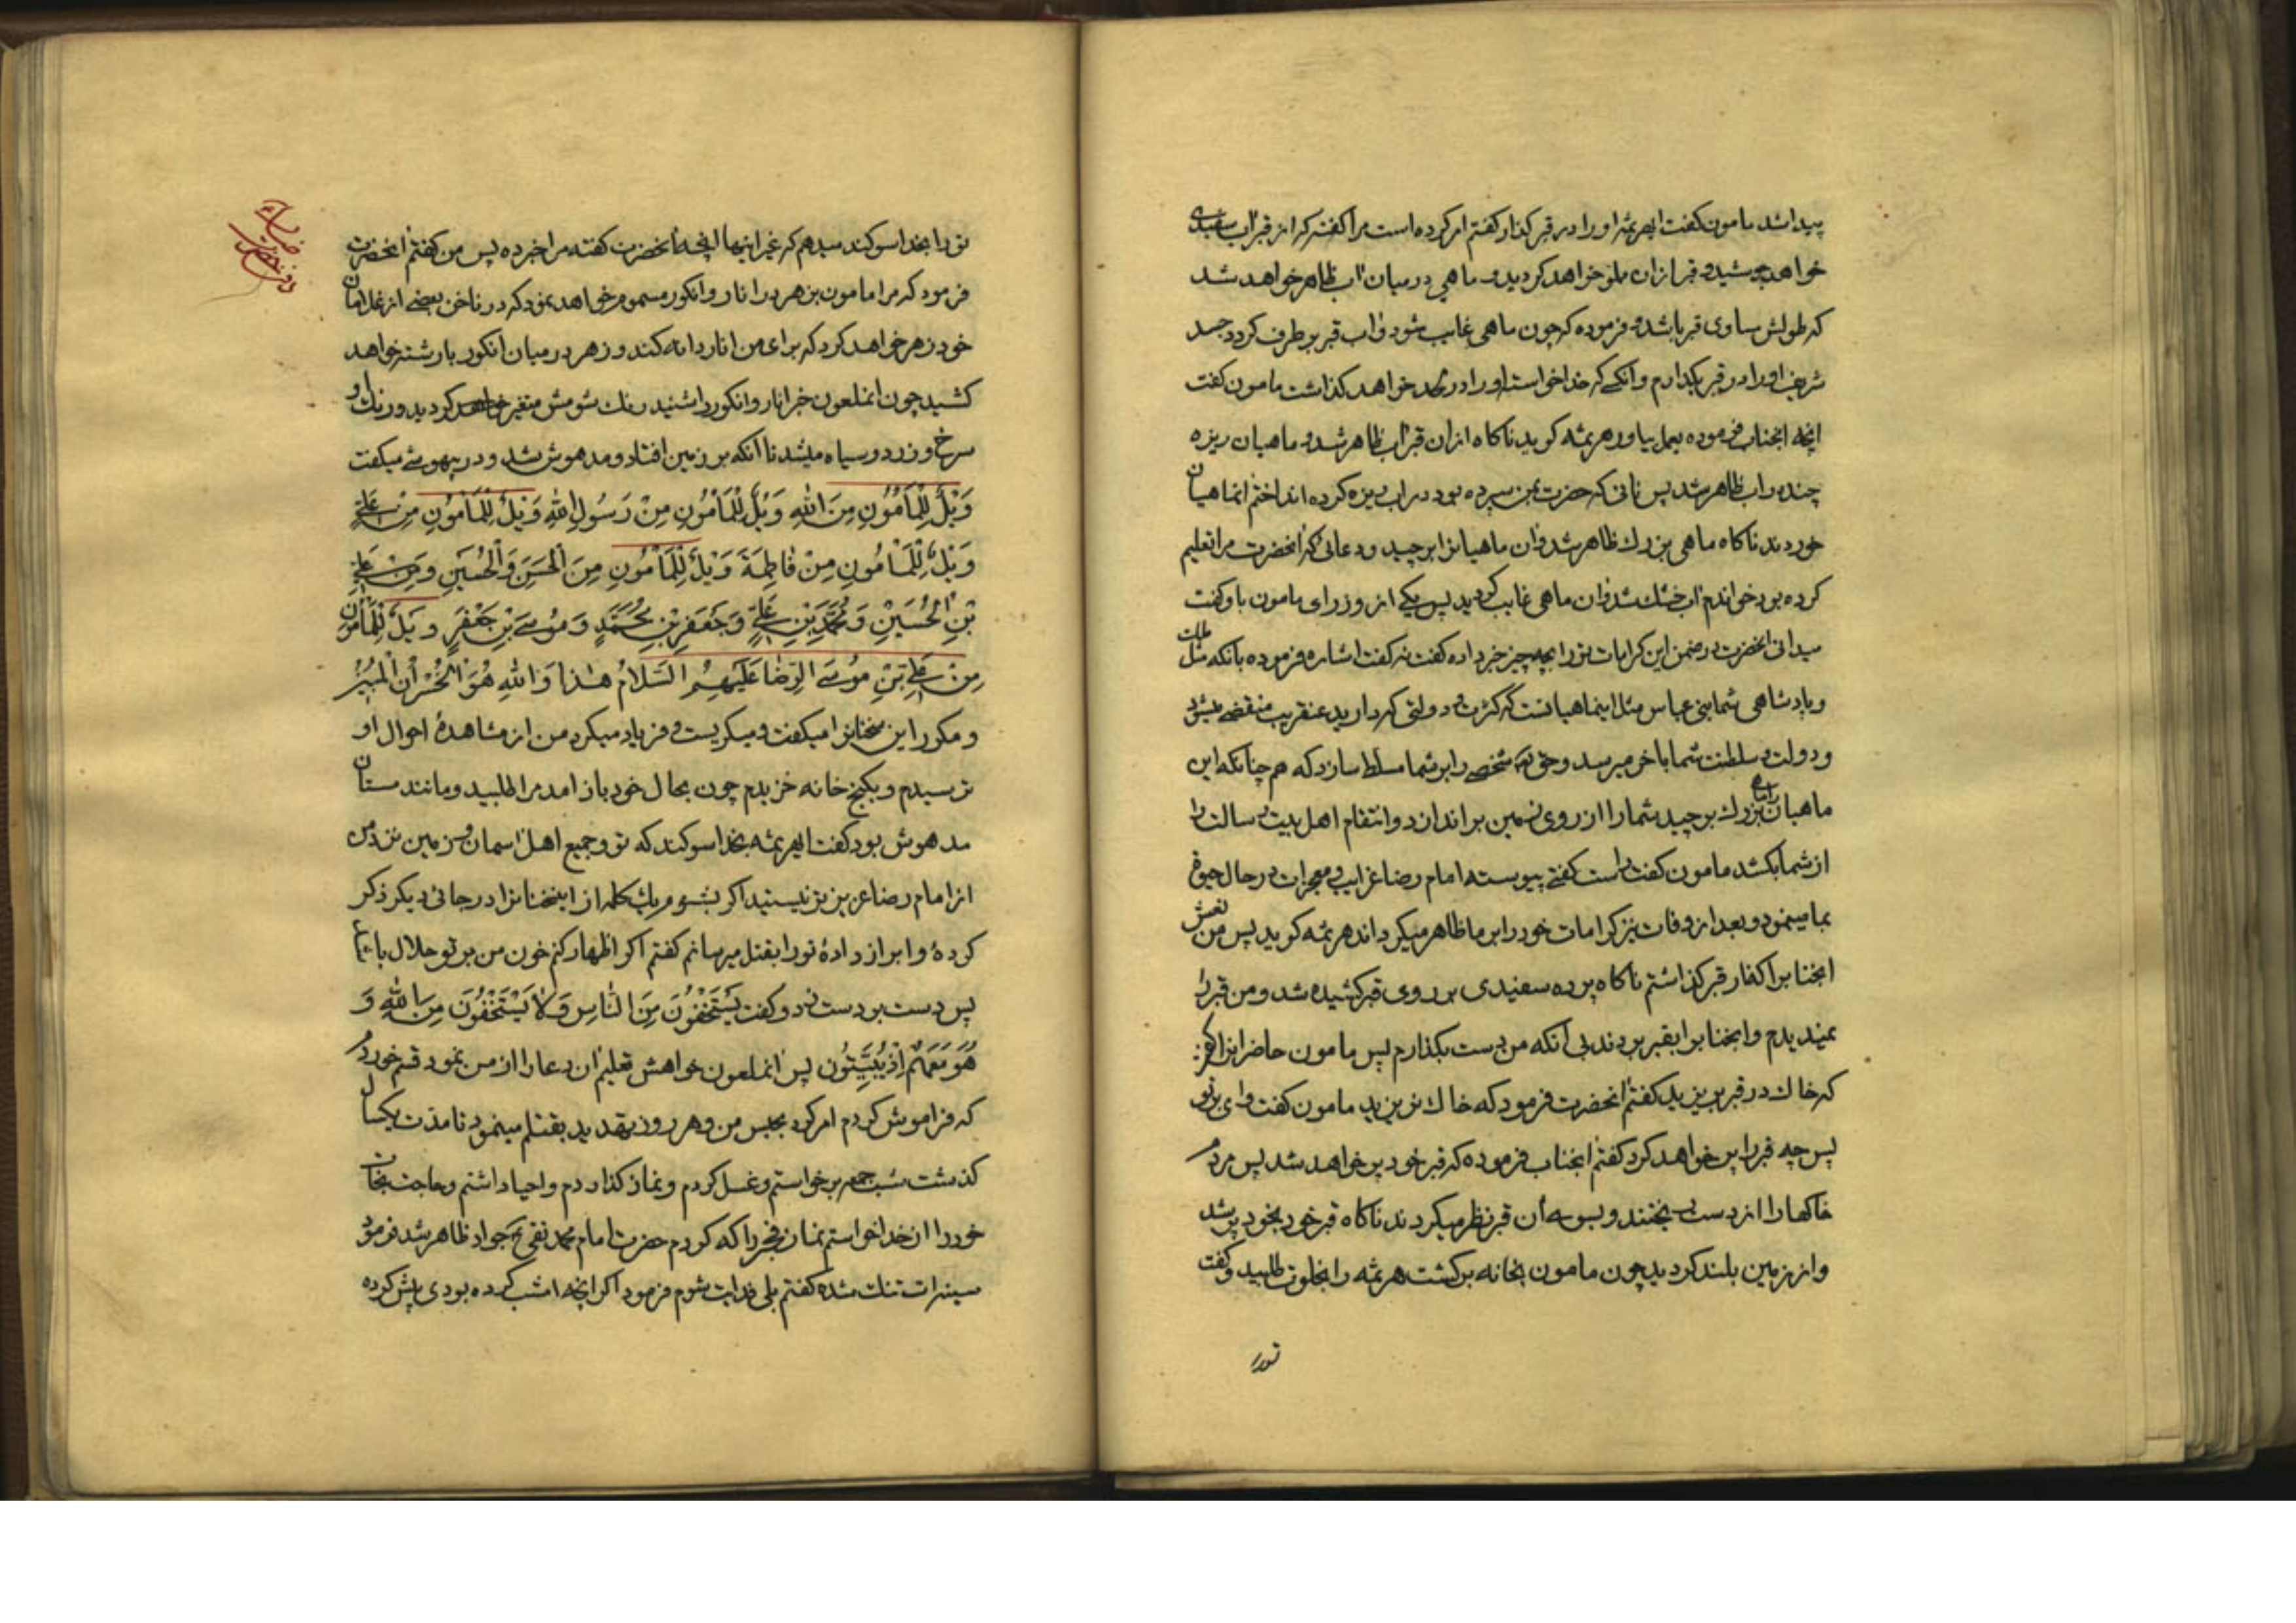 پیدا شد مامون گفت ایهرثمه او را در قبر گذار گفتم امر کرده است مرا گفته که از قبر آب سفیدی
خواهد جوشید و قبر ازان مملو خواهد کردید و ماهی در میان آب ظاهر خواهد شد
که طولش مساوی قبر باشد و فرموده که چون ماهی غایب شود و آب قبر برطرف کردد جسد
شریف او را در قبر بکذارم و انکسے که خدا خواسته او را در لحد خواهد کذاشت مامون کفت
انچه انجناب فرموده بعمل بیاور هرثمه کوید ناکاه ازان قبر آب ظاهر شد و ماهیان ریزه
چند در اب ظاهر شد پس نانی که حضرت بمن سپرده بود در اب ریزه کرده انداختم انماهیان
خوردند ناکاه ماهی بزرك ظاهر شد و ان ماهیانرا برچید و دعائی که انحضرت مرا تعلیم
کرده بود خواندم آب خشك شد و ان ماهی غایب کردید پس یکی از وزرای مامون باو کفت
میدانی انحضرت در ضمن این کرامات تو را بچه چیز خبر داده کفت نه کفت اشاره فرموده بانکه مثل ملك
و پادشاهی شما بنی عباس مثل اینماهیانست که کثرت و دولتی که دارید عنقریب منقضے میشود
و دولت و سلطنت شما باخر میرسد و حق تع شخصے را بر شما مسلط سازد که هم چنانکه این
ماهیان را ماهی بزرك برچید شما را از روی زمین براندازد و انتقام اهل بیت رسالت را
از شما بکشد مامون کفت راست کفتے پیوسته امام رضا غرایب و معجزات در حال حیوة
بما مینمود و بعد از وفات نیز کرامات خود را بر ما ظاهر میکرداند هرثمه کوید پس من نعش
انجنابرا کنار قبر کذاشتم ناکاه پرده سفیدی بر روی قبر کشیده شد و من قبر را
نمیدیدم و انجنابرا بقبر بردند بی انکه من دست بکذارم پس مامون حاضرانرا کفت
که خاك در قبر بریزید کفتم انحضرت فرمود که خاك نریزید مامون کفت وای بر تو
پس چه قبر را پر خواهد کرد کفتم انجناب فرموده که قبر خود پر خواهد شد پس مردم
خاکها را از دست ریختند و بسوی ان قبر نظر میکردند ناکاه قبر خود بخود پر شد
و از زمین بلند کردید چون مامون بخانه برکشت هرثمه را بخلوت طلبید و کفت
تورا
تو را بخدا سوکند میدهم که غیر اینها انچه انحضرت کفته مرا خبر ده پس من کفتم انحضرت
فرمود که مرا مامون بزهر در انار و انکور مسموم خواهد نمود که در ناخن بعضے از غلامان
خود زهر خواهد کرد که برای من انار دانه کند و زهر در میان انکور بارشته خواهد
کشید چون انملعون خبر انار و انکور را شنید رنك شومش متغیر خواهد کردید و رنك او
سرخ و زرد و سیاه میشد تا انکه بر زمین افتاد و مدهوش شد و در بیهوشے میکفت
وَیْلٌ لِلْمَأْمُونِ مِنَ اللهِ وَیْلٌ لِلْمَأْمُونِ مِنْ رَسُولِ اللهِ وَیْلٌ لِلْمَأْمُونِ مِنْ عَلِيٍّ
وَیْلٌ لِلْمَأْمُونِ مِنْ فَاطِمَةَ وَیْلٌ لِلْمَأْمُونِ مِنَ الْحَسَنِ وَالْحُسَیْنِ وَمِنْ عَلِيِّ
بْنِ الْحُسَیْنِ وَمُحَمَّدِ بْنِ عَلِيٍّ وَجَعْفَرِ بْنِ مُحَمَّدٍ وَمُوسَے بْنِ جَعْفَرٍ وَیْلٌ لِلْمَأْمُونِ
مِنْ عَلِيِّ بْنِ مُوسَے الرِّضَا عَلَیْهِمُ السَّلَامُ هٰذَا وَاللهِ هُوَ الْخُسْرَانُ الْمُبِینُ
و مکرر این سخنانرا میکفت و میکریست و فریاد میکرد من از مشاهدهٔ احوال او
ترسیدم و بکنج خانه خزیدم چون بحال خود باز امد مرا طلبید و مانند مستان
مدهوش بود کفت ایهرثمه بخدا سوکند که تو و جمیع اهل اسمان و زمین نزد من
از امام رضا عزیزتر نیستید اکر بشنوم یك کلمه از اینسخنانرا در جائی دیکر ذکر
کردهٔ و ابراز دادهٔ تو را بقتل میرسانم کفتم اکر اظهار کنم خون من بر تو حلال باشد
پس دست بر دست زد و کفت یَسْتَخْفُونَ مِنَ النَّاسِ وَلَا یَسْتَخْفُونَ مِنَ اللهِ وَ
هُوَ مَعَهُمْ إِذْ یُبَیِّتُون پس انملعون خواهش تعلیم ان دعا را از من نمود قسم خوردم
که فراموش کردم امر کرد بحبس من و هر روز بتهدید بقتلم مینمود تا مدت یکسال
کذشت شب جمعه برخواستم و غسل کردم و نماز کذاردم و احیا داشتم و حاجت نجات
خود را از خدا خواستم نماز فجر را که کردم حضرت امام محمد تقی جواد ظاهر شد فرمود
سینه‌ات تنك شده کفتم بلی فدایت شوم فرمود اکر انچه امشب کرده بودی پیش کرده